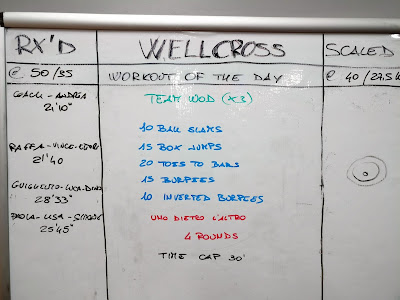 RX'D
@ 50/35
COACH - ANDREA
21'10"
RAFFA - VINCE -
21'40
GUIGLIELMO - LUCA -
28'33"
PAOLA - LISA - SIMONE
25'45"
WELLCROSS
WORKOUT OF THE DAY
TEAM WOD (x3)
10 BALL SLAMS
15 BOX JUMPS
20 TOES TO BARS
15 BURPEES
10 INVERTED BURPEES
UNO DIETRO L'ALTRO
4 ROUNDS
TIME CAP 30'
SCALED
@ 40/27,5